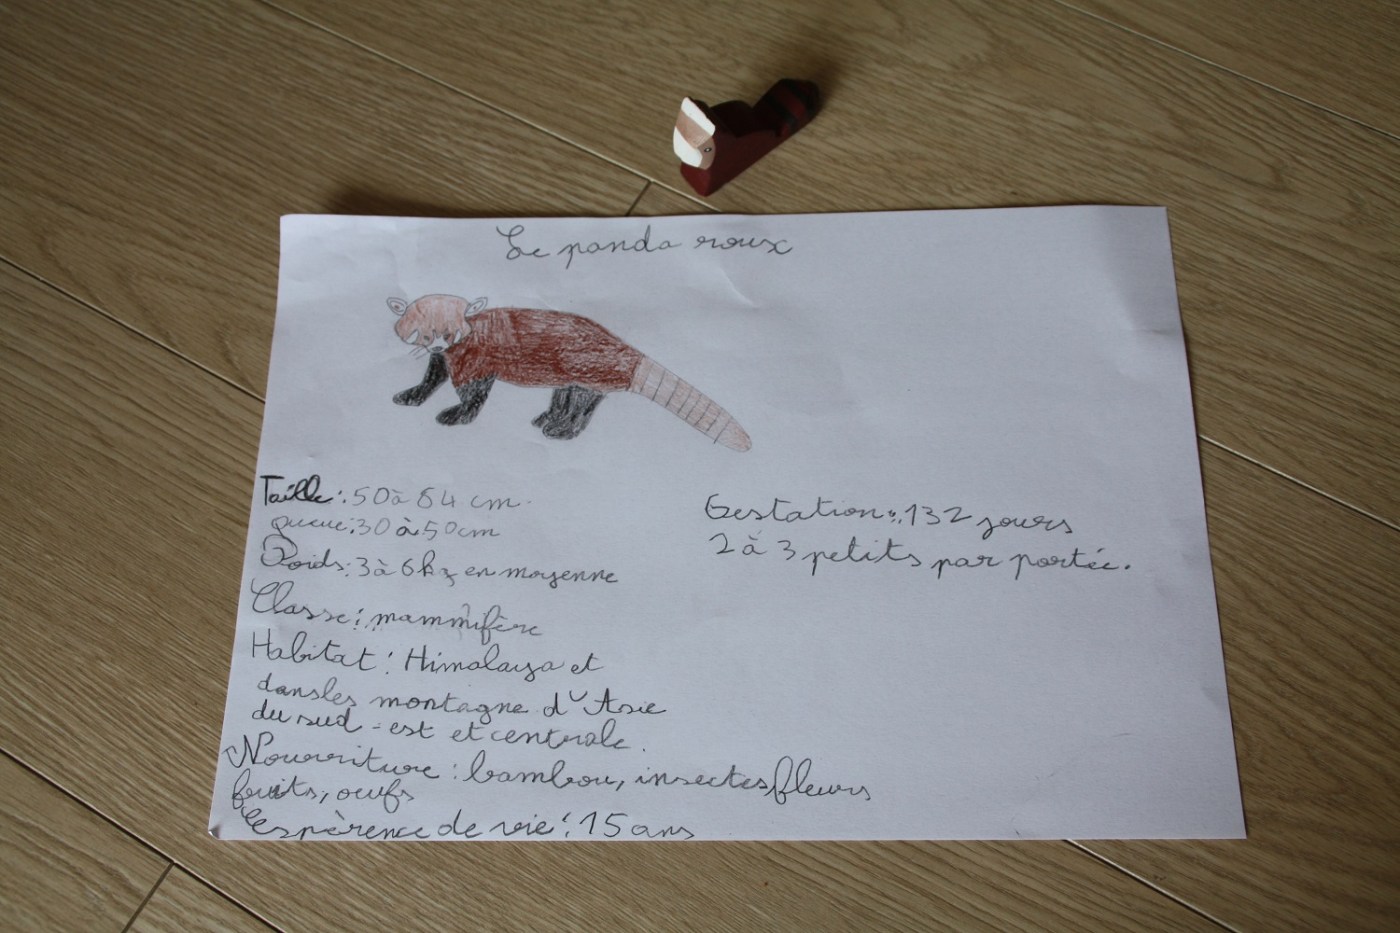 Le panda roux
Taille : 50 à 64 cm.
queue : 30 à 50 cm
Poids : 3 à 6 kg en moyenne
Classe : mammifère
Habitat : Himalaya et
dans les montagne d'Asie
du sud-est et centrale.
Nourriture : bambou, insectes, fleurs
fruits, oeufs
l'espèrence de vie : 15 ans
Gestation : 132 jours
2 à 3 petits par portée.